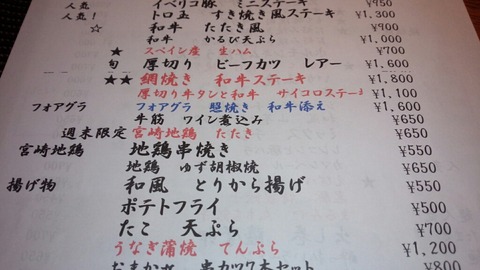 人気 イベリコ豚 ミニステーキ ¥950
人気！ トロ玉 すき焼き風ステーキ ¥1,300
☆ 和牛 たたき風 ¥900
和牛 かるび天ぷら ¥1,000
★ スペイン産 生ハム ¥700
旬 厚切り ビーフカツ レアー ¥1,600
★★ 網焼き 和牛ステーキ ¥1,800
厚切り牛タンと和牛 サイコロステーキ ¥1,100
フォアグラ フォアグラ 照焼き 和牛添え ¥1,600
牛筋 ワイン煮込み ¥650
週末限定 宮崎地鶏 たたき ¥650
宮崎地鶏 地鶏串焼き ¥550
地鶏 ゆず胡椒焼 ¥650
揚げ物 和風 とりから揚げ ¥550
ポテトフライ ¥500
たこ 天ぷら ¥700
うなぎ蒲焼 てんぷら ¥1,200
おまかせ 串カツ7本セット ¥800